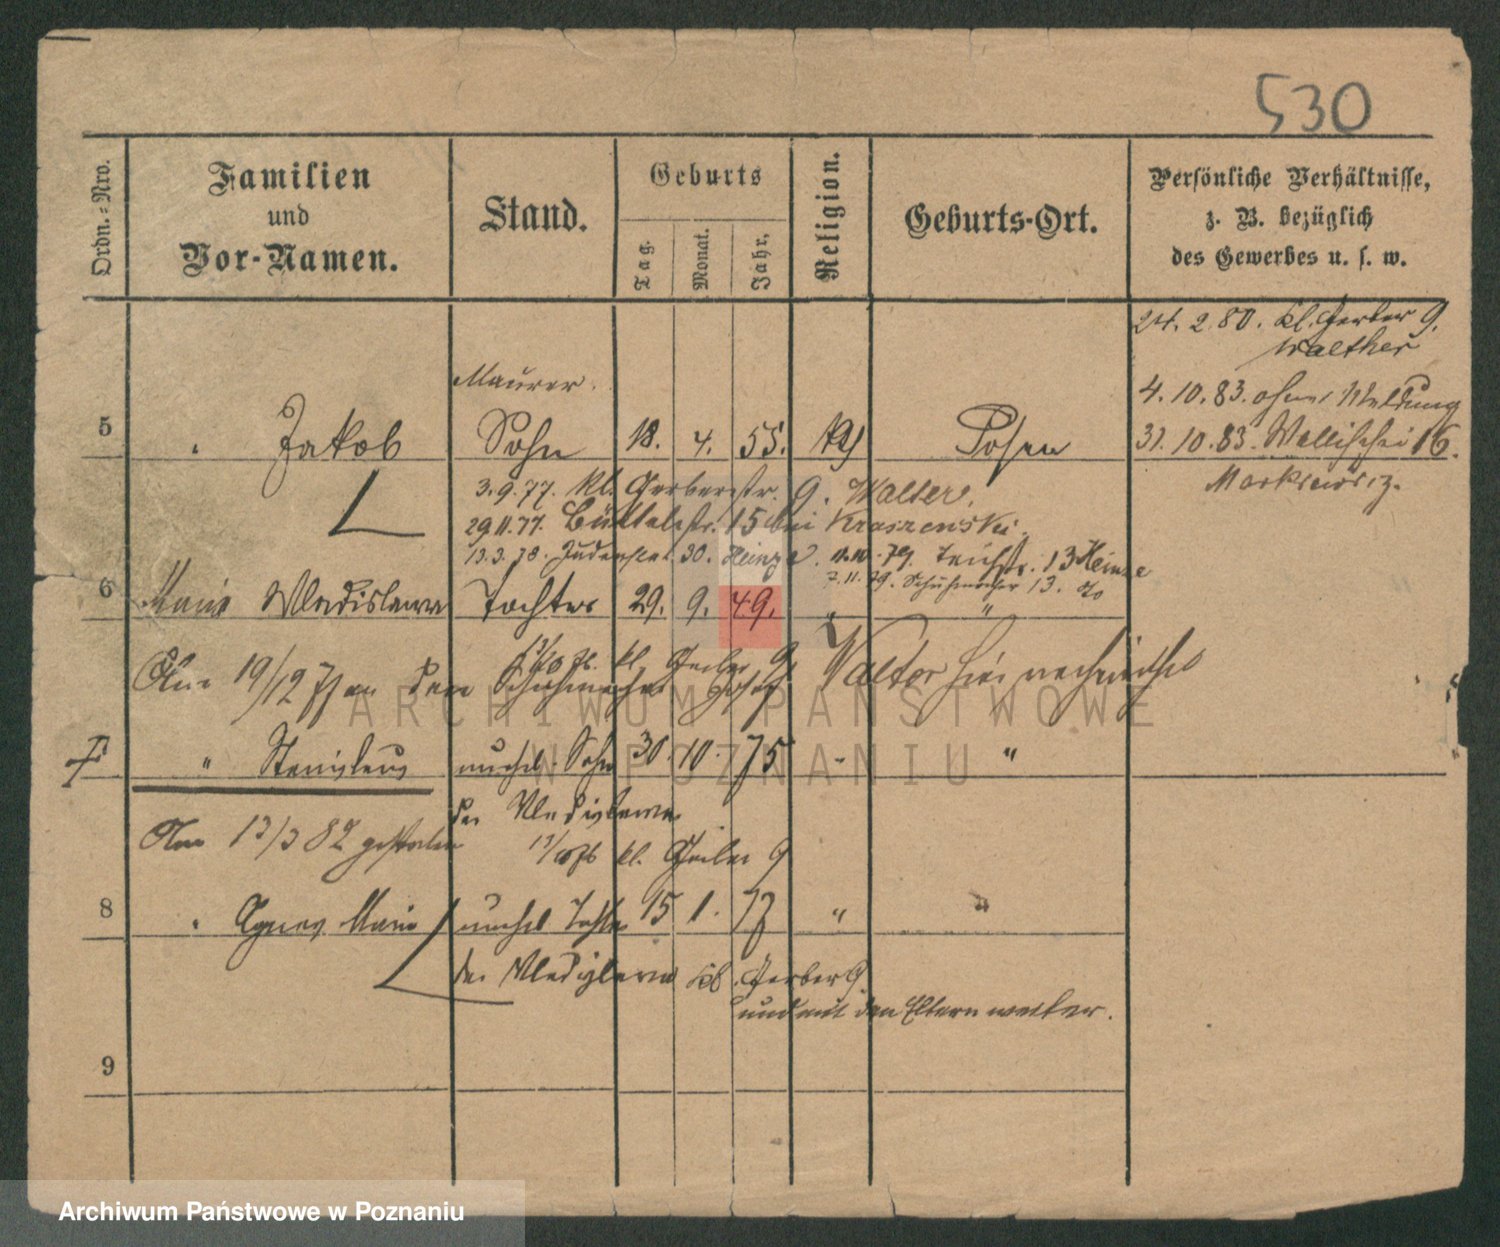 530
Ordn.-Nro.
Familien
und
Vor-Namen.
Stand.
Geburts
Tag.
Monat.
Jahr,
Religion.
Geburts-Ort.
Persönliche Verhältnisse,
z. B. bezüglich
des Gewerbes u. s. w.
24. 2. 80. kl. Gerber 9.
Walther
Maurer.
4. 10. 83. ohne Meldung
5 Jakob Sohn 18. 4. 55. Posen
31. 10. 83. Wallischei 16.
Markiewicz.
3. 9. 77. kl. Gerberstr. 9. Walter.
29 11. 77. Büttelstr. 15 bei Kraszenski.
13. 3. 78. Judenstr. 30. Heinze. 79. Teichstr. 13 Heinze
2. 11. 79. Schuhmacher 13.
6 Maria Wladislawa Tochter 29. 9. 49. "
kl. Gerber 9.
Am 19/12 77 an den Schuhmacher Walter hier
" Stanislaus unehel. Sohn 30. 10. 75 - "
der Wladislawa
Am 13/3 82 gestorben
kl. Gerber 9
8 Agnes Maria unehel Tochter 15 1. 77 " "
der Wladislawa kl. Gerber 9
und mit den Eltern weiter.
9
ARCHIWUM PAŃSTWOWE
W POZNANIU
Archiwum Państwowe w Poznaniu